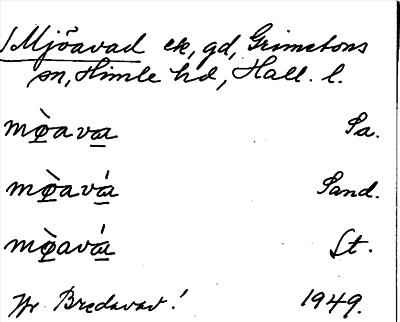 Mjöavad ek, gd, Grimetons
sn, Himle hd, Hall. l.
mø̀ava Sa.
mø̀avá Sand.
mø̀avá St.
Jfr Bredavad! 1949.